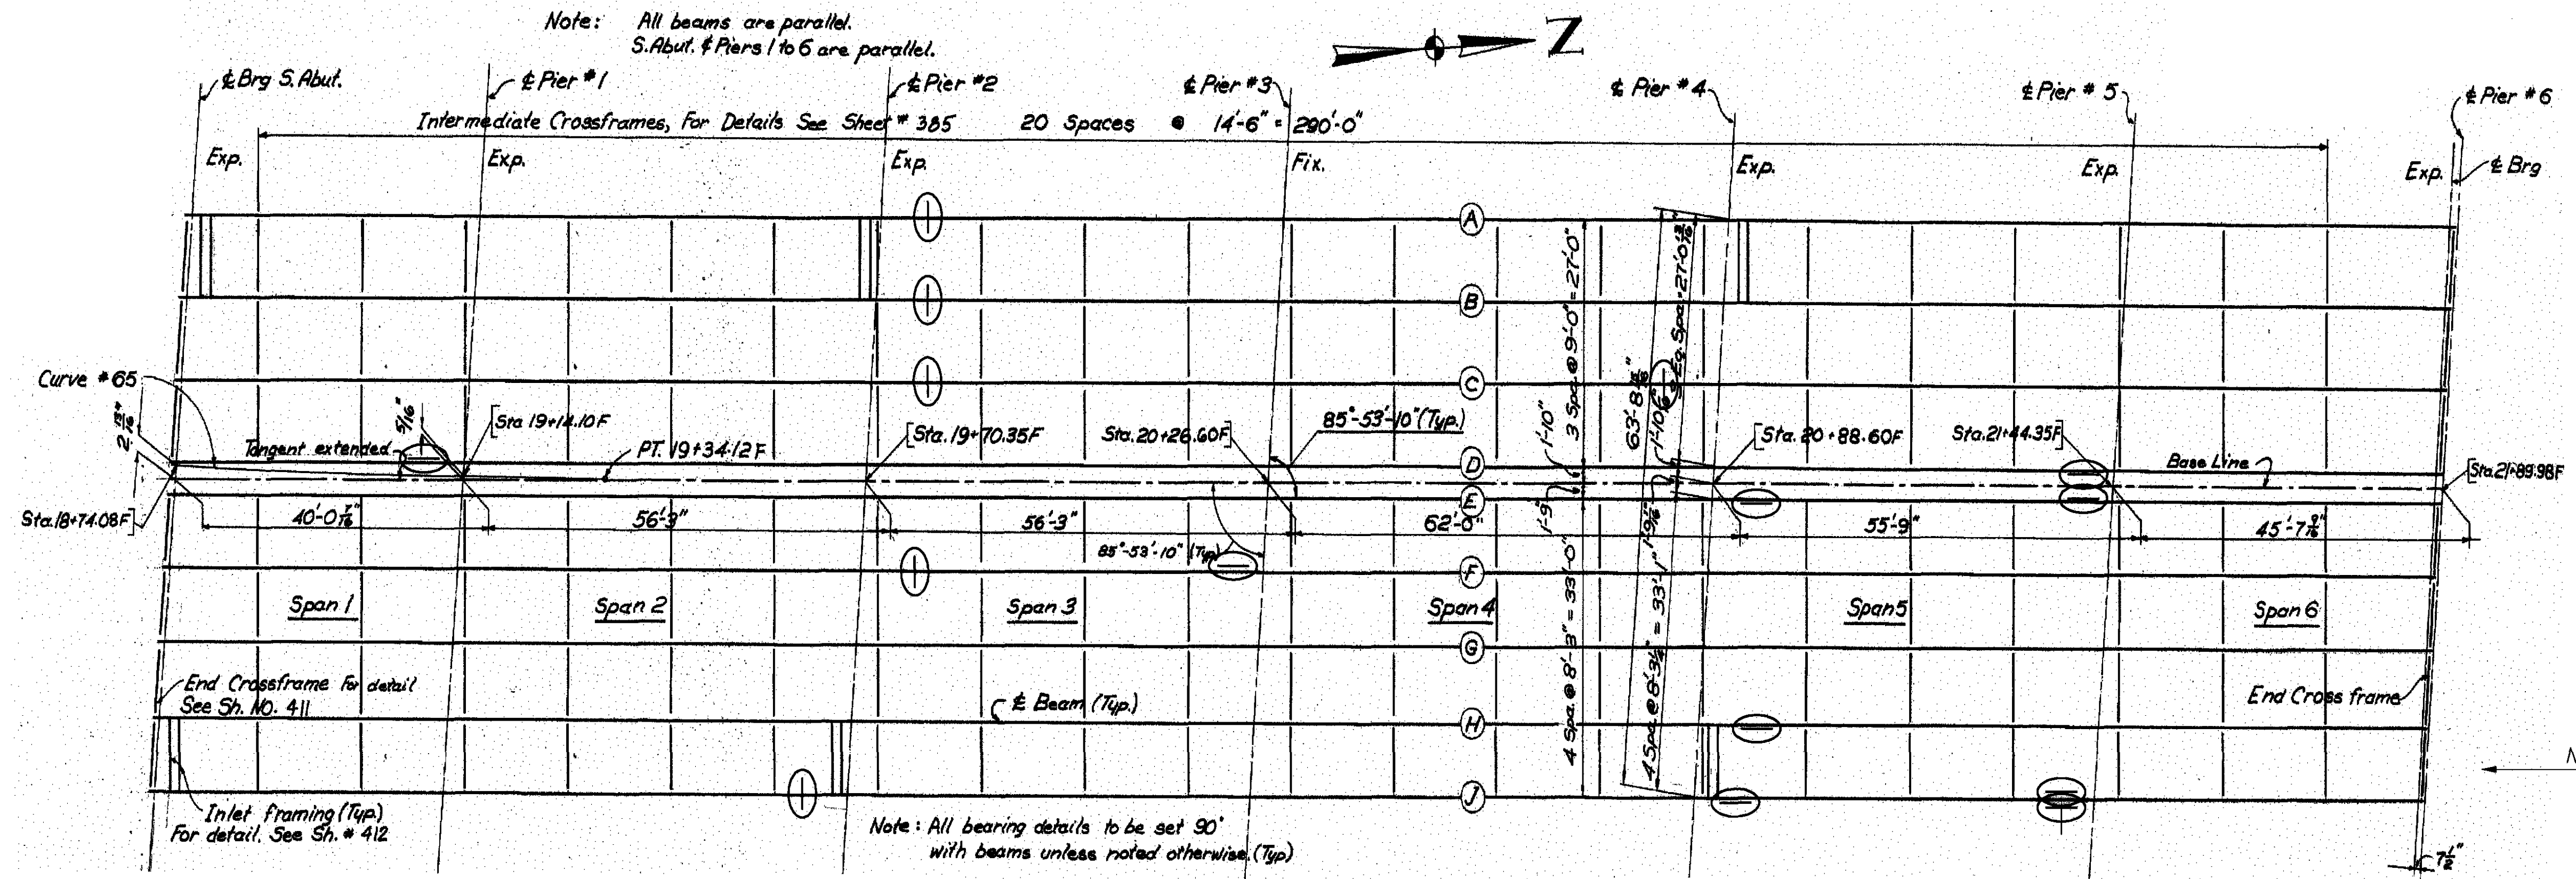 Note: All beams are parallel.
S.Abut. ₵ Piers 1 to 6 are parallel.
Z
₵ Brg S. Abut.
₵ Pier #1
₵ Pier #2
₵ Pier #3
₵ Pier #4
₵ Pier # 5
₵ Pier # 6
Intermediate Crossframes, For Details See Sheet # 385 20 Spaces @ 14'-6" = 290'-0"
Exp.
Exp.
Exp.
Fix.
Exp.
Exp.
Exp.
₵ Brg
A
B
C
D
E
F
G
H
J
3 Spa. @ 9'-0" = 27'-0"
1'-10"
1'-9"
4 Spa @ 8'-3" = 33'-0"
Curve #65
5/16"
Tangent extended
Sta 19+14.10F
PT. 19+34.12F
Sta. 19+70.35F
Sta. 20+26.60F
85°-53'-10" (Typ.)
Sta. 20+88.60F
Sta. 21+44.35F
Base Line
Sta. 21+89.98F
Sta. 18+74.08F
40'-0 7/16"
56'-3"
56'-3"
62'-0"
55'-9"
45'-7 9/16"
85°-53'-10" (Typ)
Span 1
Span 2
Span 3
Span 4
Span 5
Span 6
End Crossframe For detail
See Sh. NO. 411
₵ Beam (Typ.)
End Cross frame
Inlet framing (Typ.)
For detail. See Sh. # 412
Note: All bearing details to be set 90°
with beams unless noted otherwise. (Typ)
7 1/2"
N